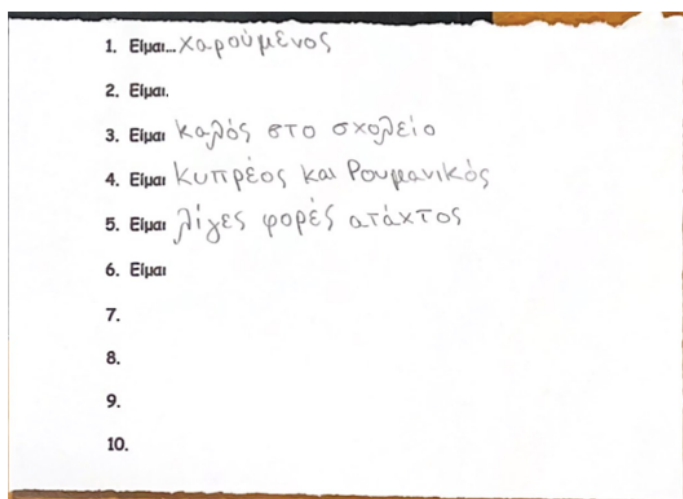 1. Είμαι... χαρούμενος
2. Είμαι.
3. Είμαι καλός στο σχολείο
4. Είμαι κυπρέος και Ρουμανικός
5. Είμαι λίγες φορές ατάχτος
6. Είμαι
7.
8.
9.
10.